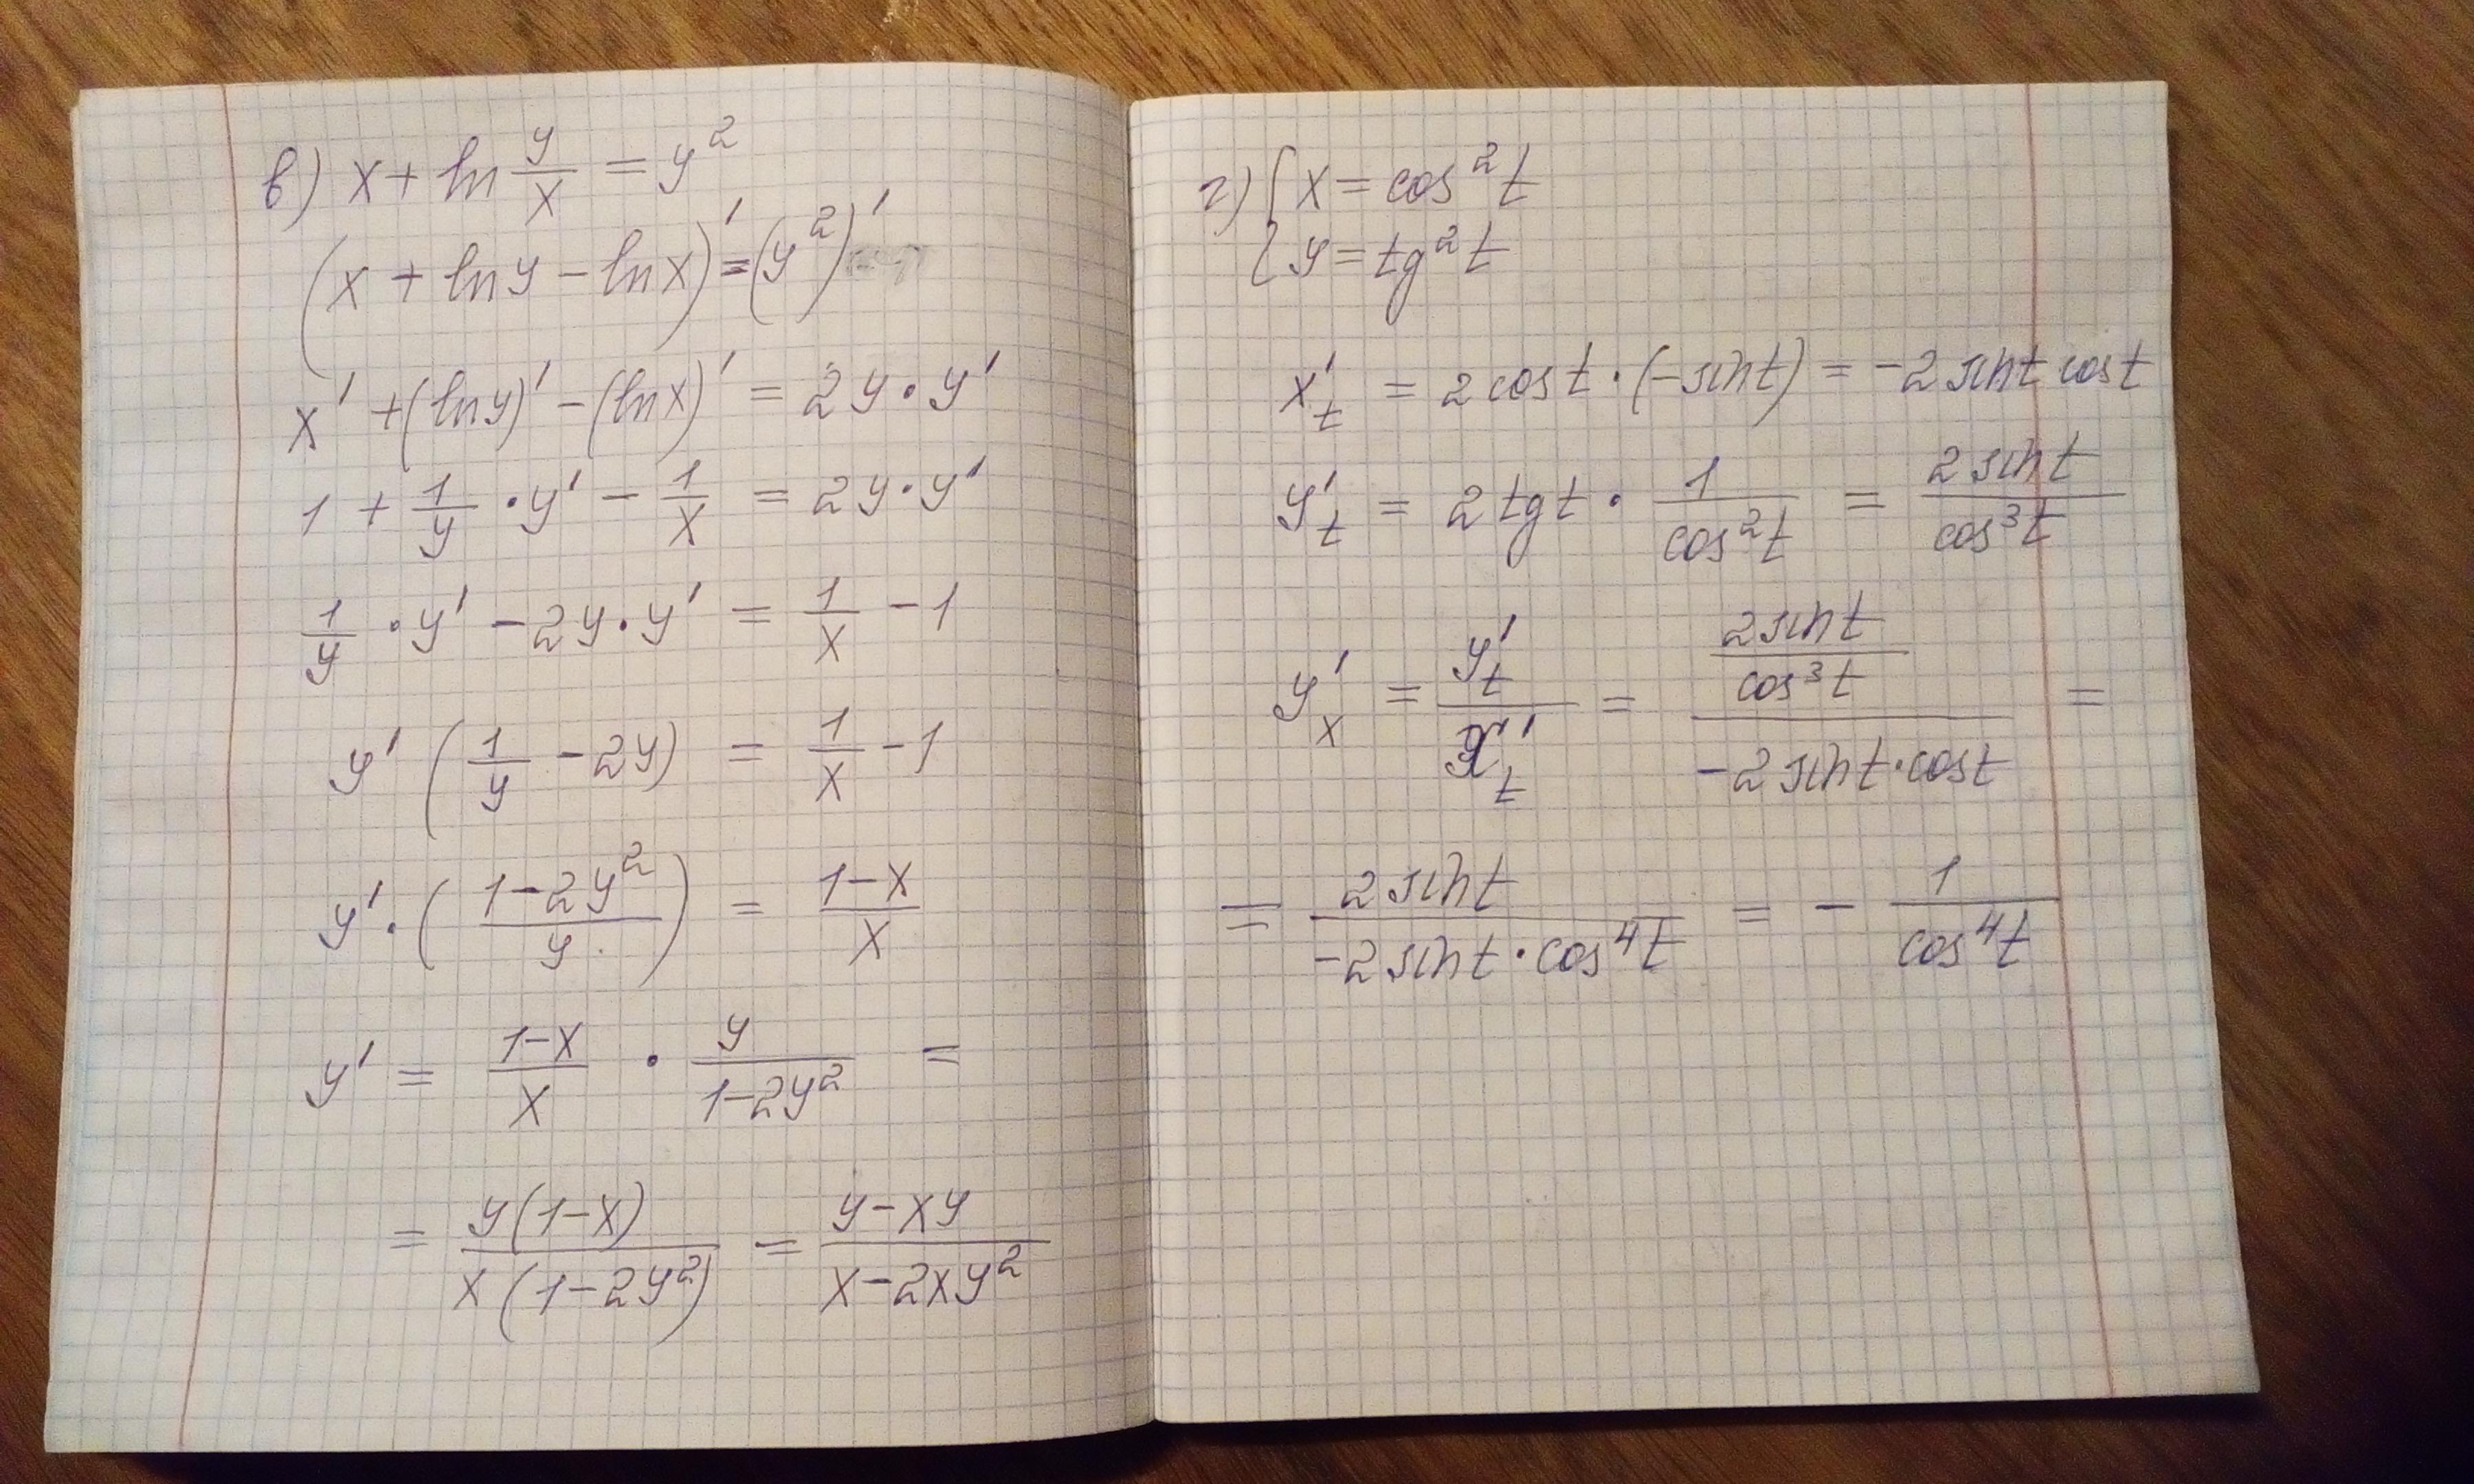 в) x + ln y/x = y²
(x + ln y − ln x)' = (y²)'
x' + (ln y)' − (ln x)' = 2y · y'
1 + 1/y · y' − 1/x = 2y · y'
1/y · y' − 2y · y' = 1/x − 1
y' (1/y − 2y) = 1/x − 1
y' · ((1−2y²)/y) = (1−x)/x
y' = (1−x)/x · y/(1−2y²) =
= y(1−x)/(x(1−2y²)) = (y−xy)/(x−2xy²)
г) { x = cos²t
{ y = tg²t
x't = 2 cos t · (−sin t) = −2 sin t cos t
y't = 2 tg t · 1/cos²t = 2 sin t/cos³t
y'x = y't/x't = (2 sin t/cos³t)/(−2 sin t · cos t) =
= 2 sin t/(−2 sin t · cos⁴t) = − 1/cos⁴t